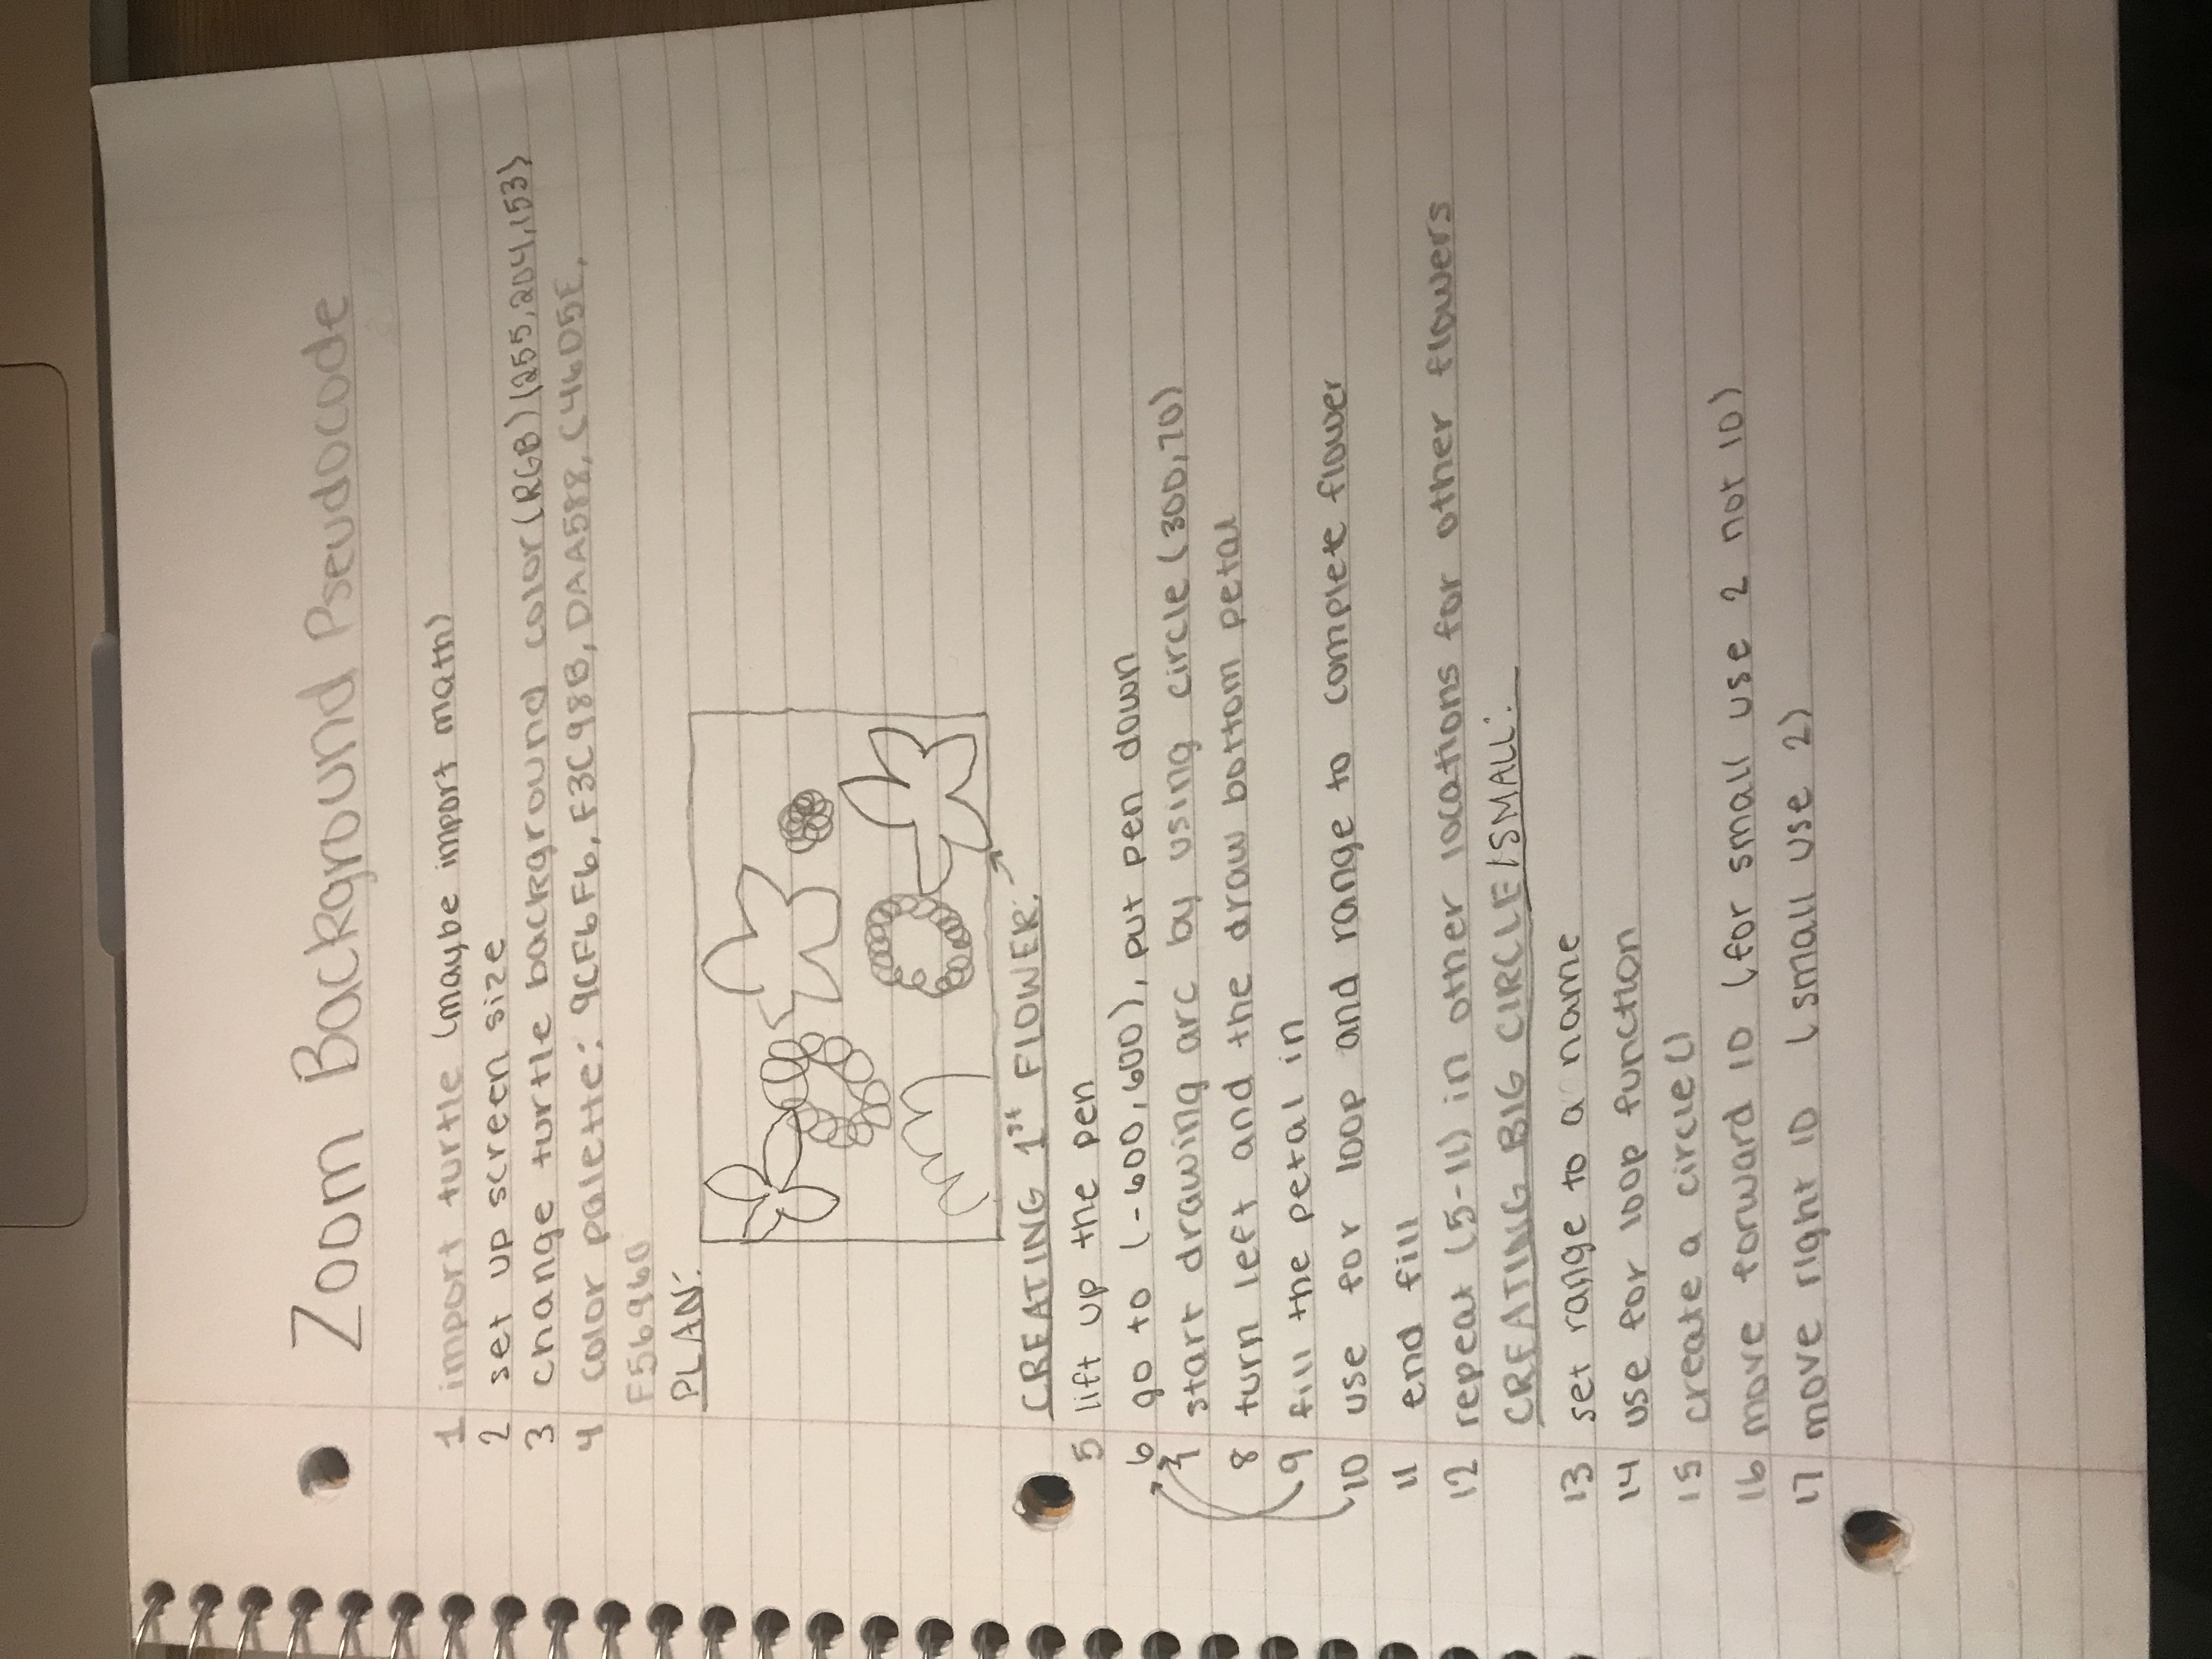 Zoom Background Pseudocode
1 import turtle (maybe import math)
2 set up screen size
3 change turtle background color (RGB) (255,204,153)
4 color palette: 9CF6F6, F3C98B, DAA588, C46D5E,
F56960
PLAN:
CREATING 1st FLOWER:
5 lift up the pen
6 go to (-600,600), put pen down
7 start drawing arc by using circle (300,70)
8 turn left and the draw bottom petal
9 fill the petal in
10 use for loop and range to complete flower
11 end fill
12 repeat (5-11) in other locations for other flowers
CREATING BIG CIRCLE/SMALL:
13 set range to a name
14 use for loop function
15 create a circle()
16 move forward 10 (for small use 2 not 10)
17 move right 10 (small use 2)